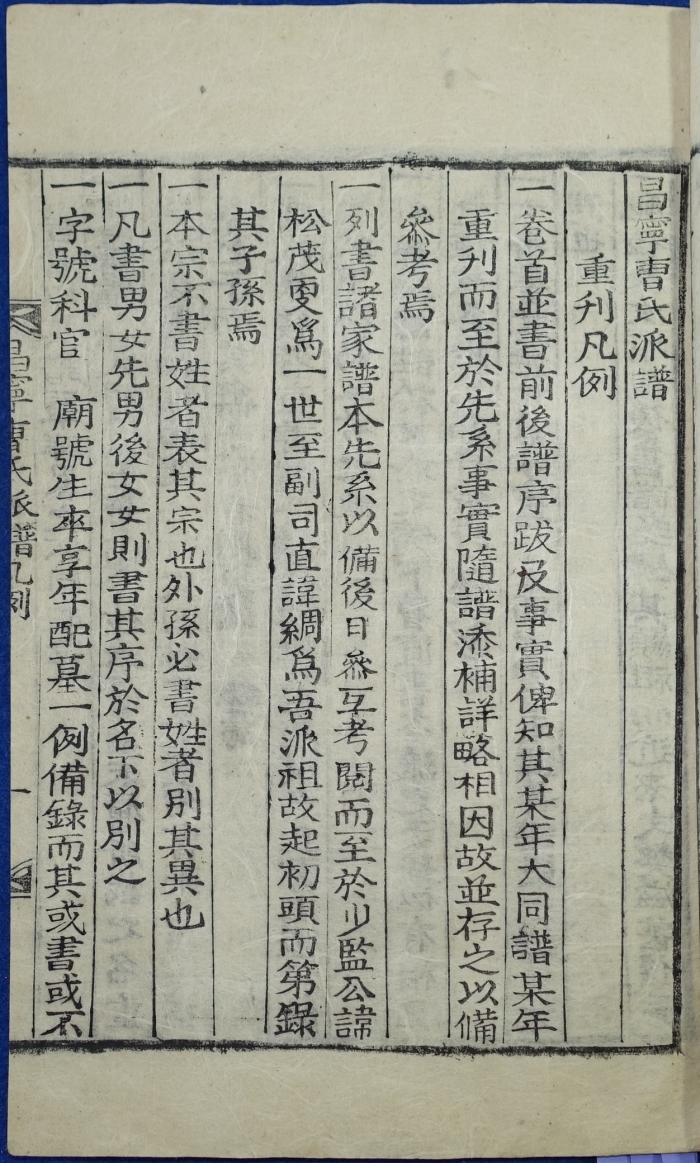 昌寧曺氏派譜
重刋凡例
一卷首並書前後譜序跋及事實俾知其某年大同譜某年
重刋而至於先系事實隨譜添補詳略相因故並存之以備
叅考焉
一列書諸家譜本先系以備後日叅互考閱而至於少監公諱
松茂更爲一世至副司直諱綢爲吾派祖故起初頭而第錄
其子孫焉
一本宗不書姓者表其宗也外孫必書姓者別其異也
一凡書男女先男後女女則書其序於名下以別之
一字號科官　廟號生卒享年配墓一例備錄而其或書或不
昌寧曺氏派譜凡例　一